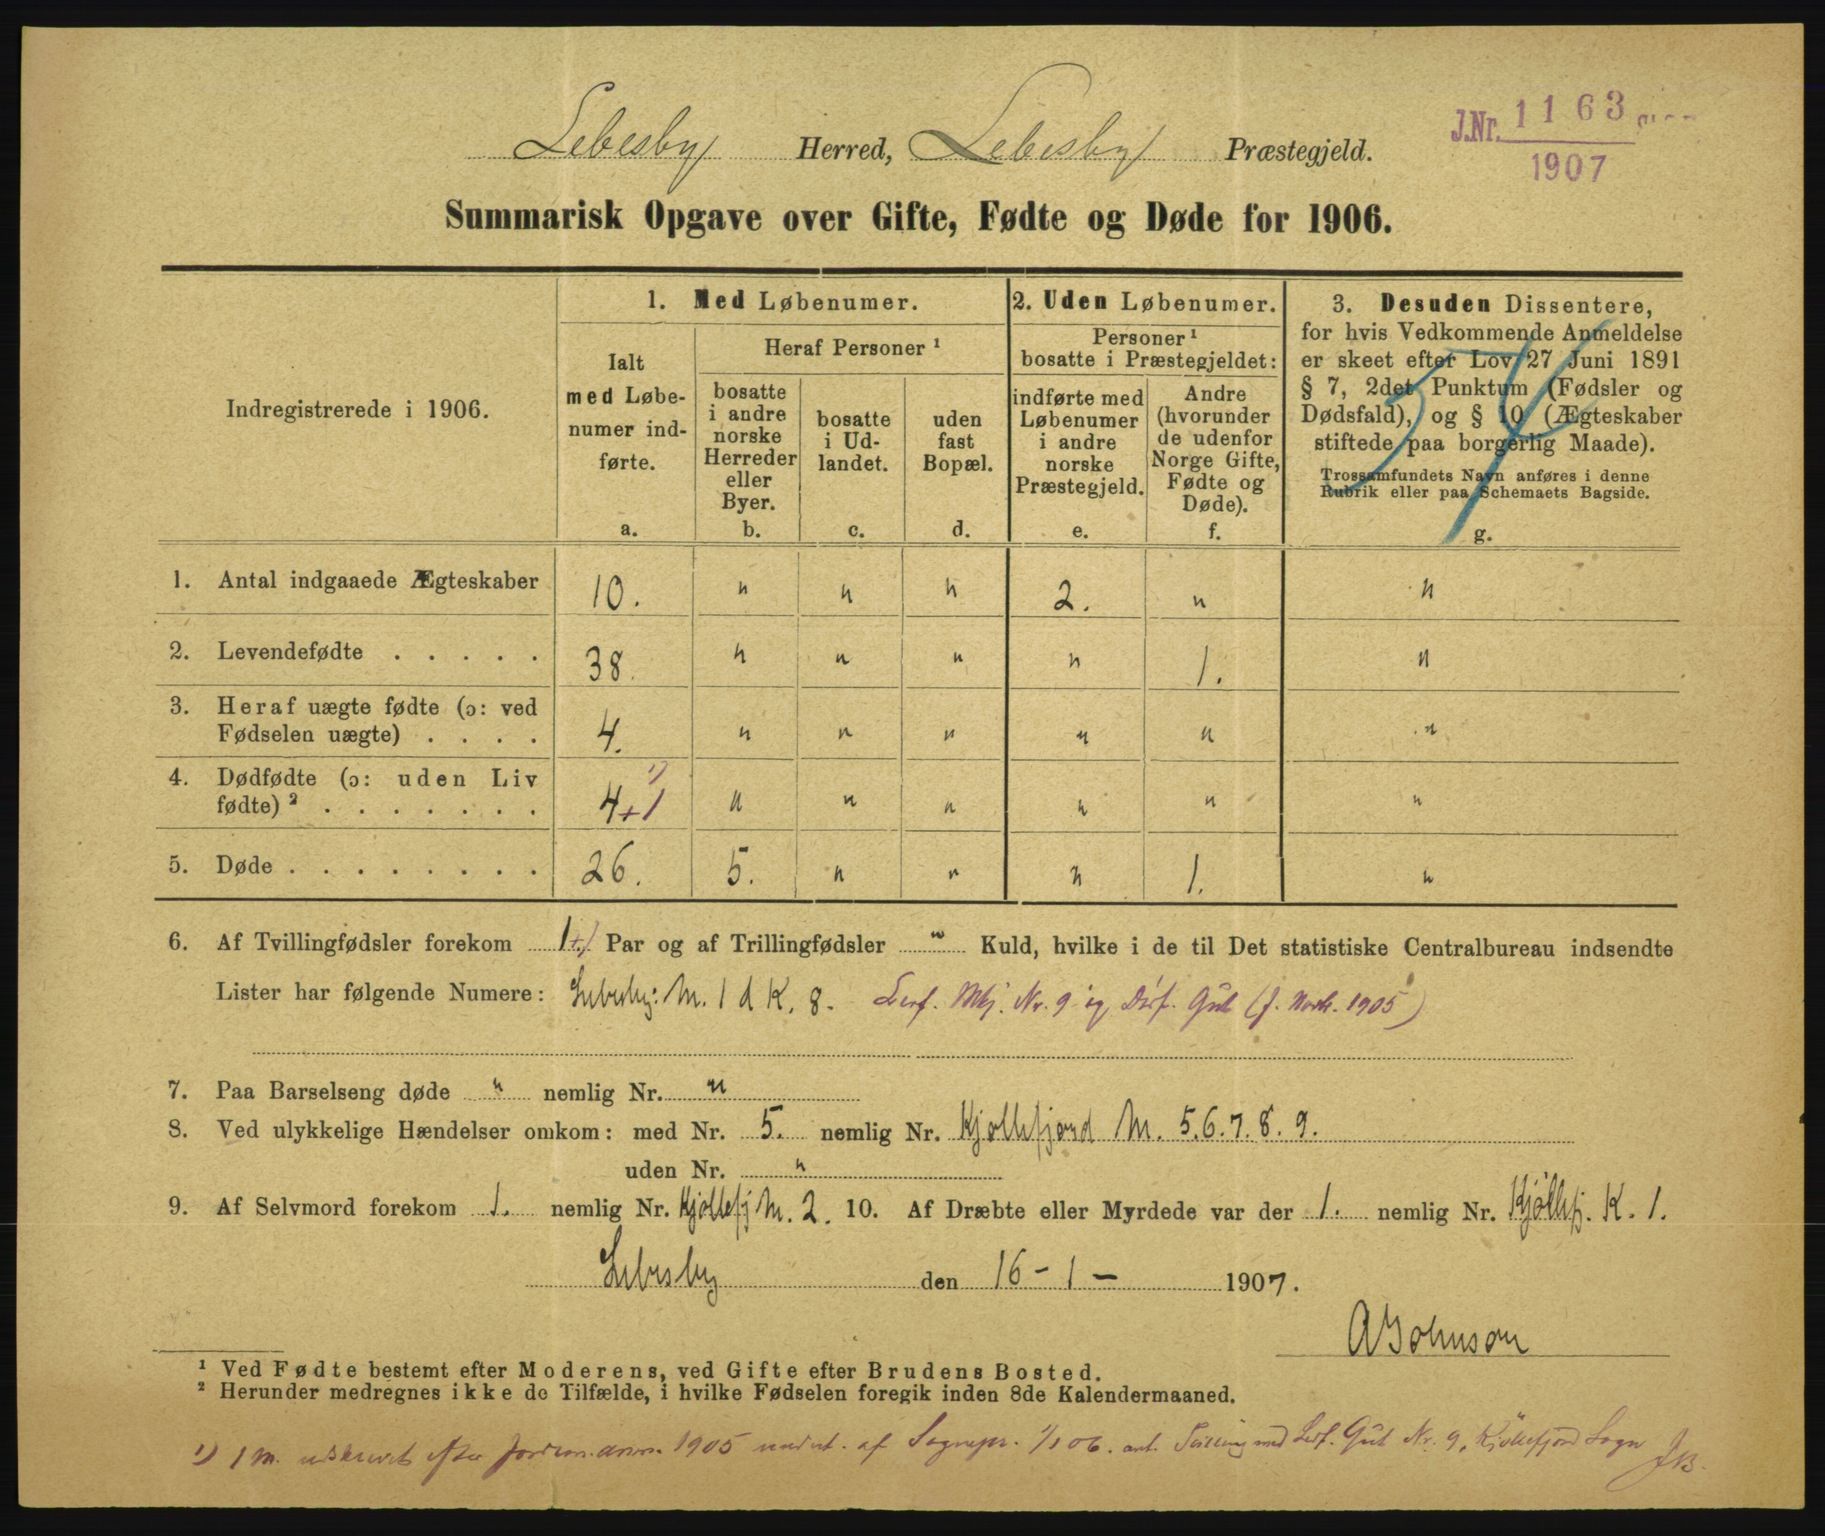 Lebesby Herred, Lebesby Præstegjeld.
J.Nr. 1163
1907
Summarisk Opgave over Gifte, Fødte og Døde for 1906.
Indregistrerede i 1906.
1. Med Løbenumer.
Ialt med Løbenumer indførte.
a.
Heraf Personer ¹
bosatte i andre norske Herreder eller Byer.
b.
bosatte i Udlandet.
c.
uden fast Bopæl.
d.
2. Uden Løbenumer.
Personer ¹ bosatte i Præstegjeldet:
indførte med Løbenumer i andre norske Præstegjeld.
e.
Andre (hvorunder de udenfor Norge Gifte, Fødte og Døde).
f.
3. Desuden Dissentere,
for hvis Vedkommende Anmeldelse
er skeet efter Lov 27 Juni 1891
§ 7, 2det Punktum (Fødsler og
Dødsfald), og § 10 (Ægteskaber
stiftede paa borgerlig Maade).
Trossamfundets Navn anføres i denne
Rubrik eller paa Schemaets Bagside.
g.
1. Antal indgaaede Ægteskaber 10. " " " 2. " "
2. Levendefødte . . . . . 38. " " " " 1. "
3. Heraf uægte fødte (ɔ: ved
Fødselen uægte) . . . . 4. " " " " " "
4. Dødfødte (ɔ: uden Liv
fødte) ² . . . . . . . 4+1 ¹) " " " " " "
5. Døde . . . . . . . . 26. 5. " " " 1. "
6. Af Tvillingfødsler forekom 1+1 Par og af Trillingfødsler " Kuld, hvilke i de til Det statistiske Centralbureau indsendte
Lister har følgende Numere: Lebesby: M. 1 d K. 8. Levf. Mkj. Nr. 9 og Døf. Gut (f. 1905)
7. Paa Barselseng døde " nemlig Nr. "
8. Ved ulykkelige Hændelser omkom: med Nr. 5. nemlig Nr. Kjøllefjord M. 5.6.7.8.9.
uden Nr. "
9. Af Selvmord forekom 1. nemlig Nr. Kjøllefj M. 2. 10. Af Dræbte eller Myrdede var der 1. nemlig Nr. Kjøllefj. K. 1.
Lebesby den 16 - 1 - 1907.
A Johnson
¹ Ved Fødte bestemt efter Moderens, ved Gifte efter Brudens Bosted.
² Herunder medregnes ikke de Tilfælde, i hvilke Fødselen foregik inden 8de Kalendermaaned.
¹) 1 M. udskrevet efter 1905 af Sognepr. 06. ant. Tvilling med Levf. Gut Nr. 9, Kjøllefjord Sogn